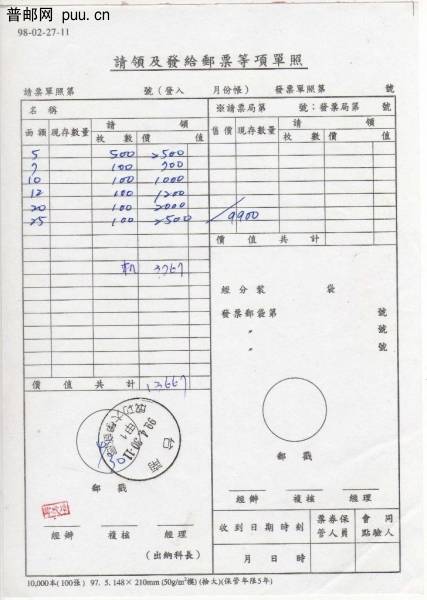 普邮网 puu.cn
98-02-27-11
請領及發給郵票等項單照
請票單照第 號(登入 月份帳) 發票單照第 號
名 稱 ※請票局第 號;發票局第 號
面額 現存數量 請 領 售價 現存數量 請 領
枚 數 價 值 枚 數 價 值
5 500 2500
7 100 700
10 100 1000
12 100 1200
20 100 2000
25 100 2500 9900
價 值 共 計
3767
經 分 裝 袋
發票郵袋第 號
〃 號
〃 號
價 值 共 計 13667
台南
99.4.30-11
甲1
郵 戳
郵 戳
經辦 複核 經理
經辦 複核 經理
(出納科長)
收到日期時刻 票券保管人員 會同點驗人
月 日 時
10,000本(100張) 97. 5. 148×210mm (50g/m²模) (檢大)(保管年限5年)